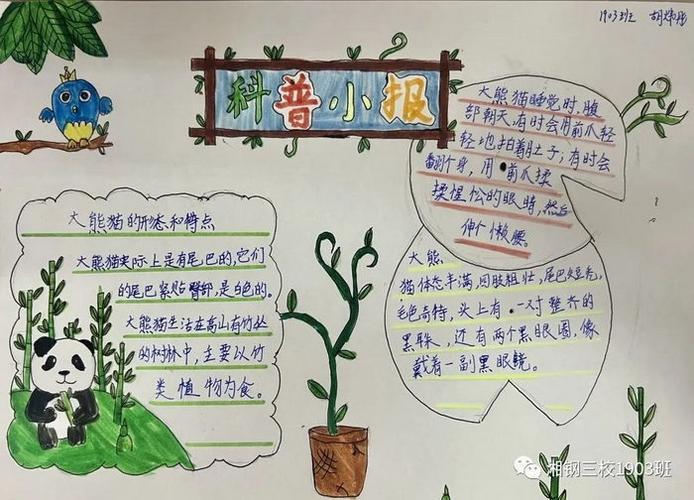 1903班 胡炜彤
科普小报
大熊猫睡觉时,腹
部朝天,有时会用前爪轻
轻地拍着肚子;有时会
翻个身,用前爪揉
揉惺松的眼睛,然后
伸个懒腰。
大熊猫的形态和特点
大熊猫实际上是有尾巴的,它们
的尾巴紧贴臀部,是白色的。
大熊猫生活在高山有竹丛
的树林中,主要以竹
类植物为食。
大熊
猫体态丰满,四肢粗壮,尾巴短秃,
毛色奇特,头上有一对整齐的
黑耳朵,还有两个黑眼圈,像
戴着一副黑眼镜。
湘钢三校1903班